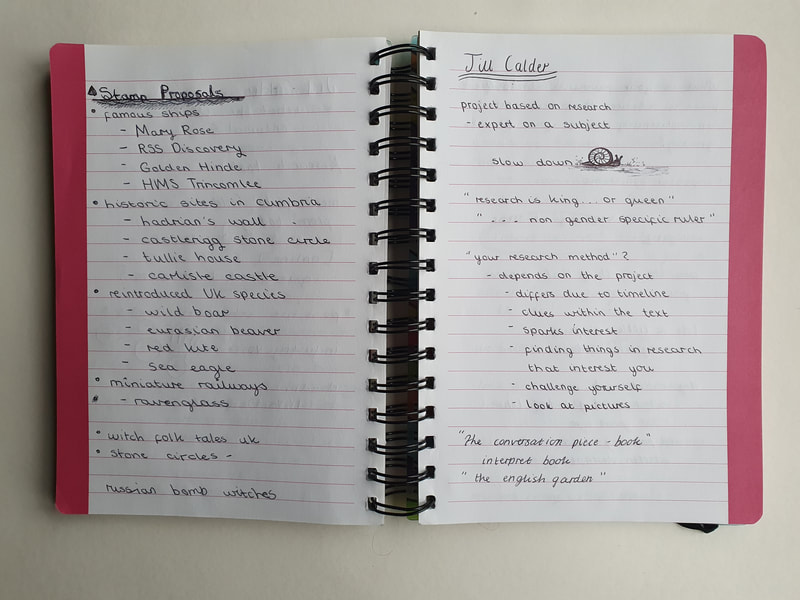 Stamp Proposals
• famous ships
- Mary Rose
- RSS Discovery
- Golden Hinde
- HMS Trincomlee
• historic sites in cumbria
- hadrian's wall
- castlerigg stone circle
- tullie house
- carlisle castle
• reintroduced UK species
- wild boar
- eurasian beaver
- red kite
- sea eagle
• miniature railways
• - ravenglass
• witch folk tales uk
• stone circles -
russian bomb witches
Jill Calder
project based on research
- expert on a subject
slow down
"research is king... or queen"
"... non gender specific ruler"
"your research method"?
- depends on the project
- differs due to timeline
- clues within the text
- sparks interest
- finding things in research
that interest you
- challenge yourself
- look at pictures
"The conversation piece - book"
interpret book
"the english garden"